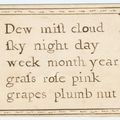 Dew miſt cloud
ſky night day
week month year
graſs roſe pink
grapes plumb nut